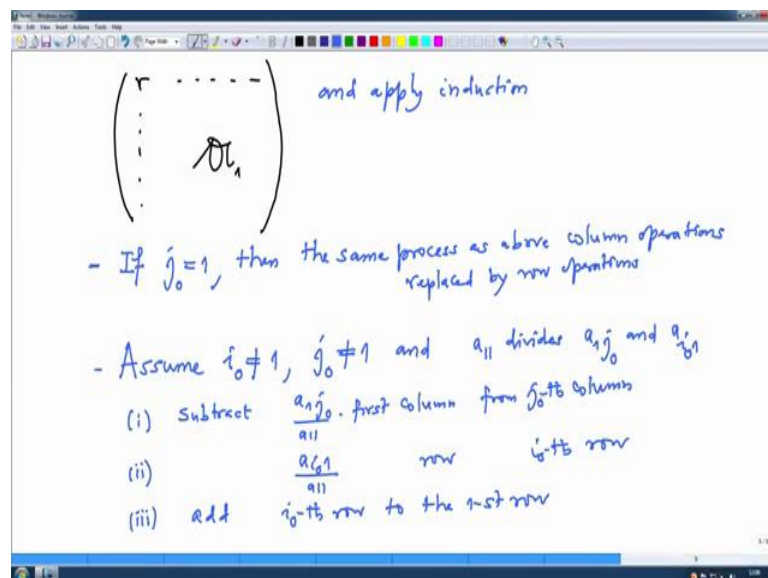 Note1 - Windows Journal
File Edit View Insert Actions Tools Help
Page Width
B
r - - - - -
𝔄₁
and apply induction
- If j₀=1, then the same process as above column operations
replaced by row operations
- Assume i₀≠1, j₀≠1 and a₁₁ divides a₁j₀ and aᵢ₀1
(i) Subtract a₁j₀/a₁₁ . first column from j₀-th column
(ii) aᵢ₀1/a₁₁ row i₀-th row
(iii) add i₀-th row to the 1-st row